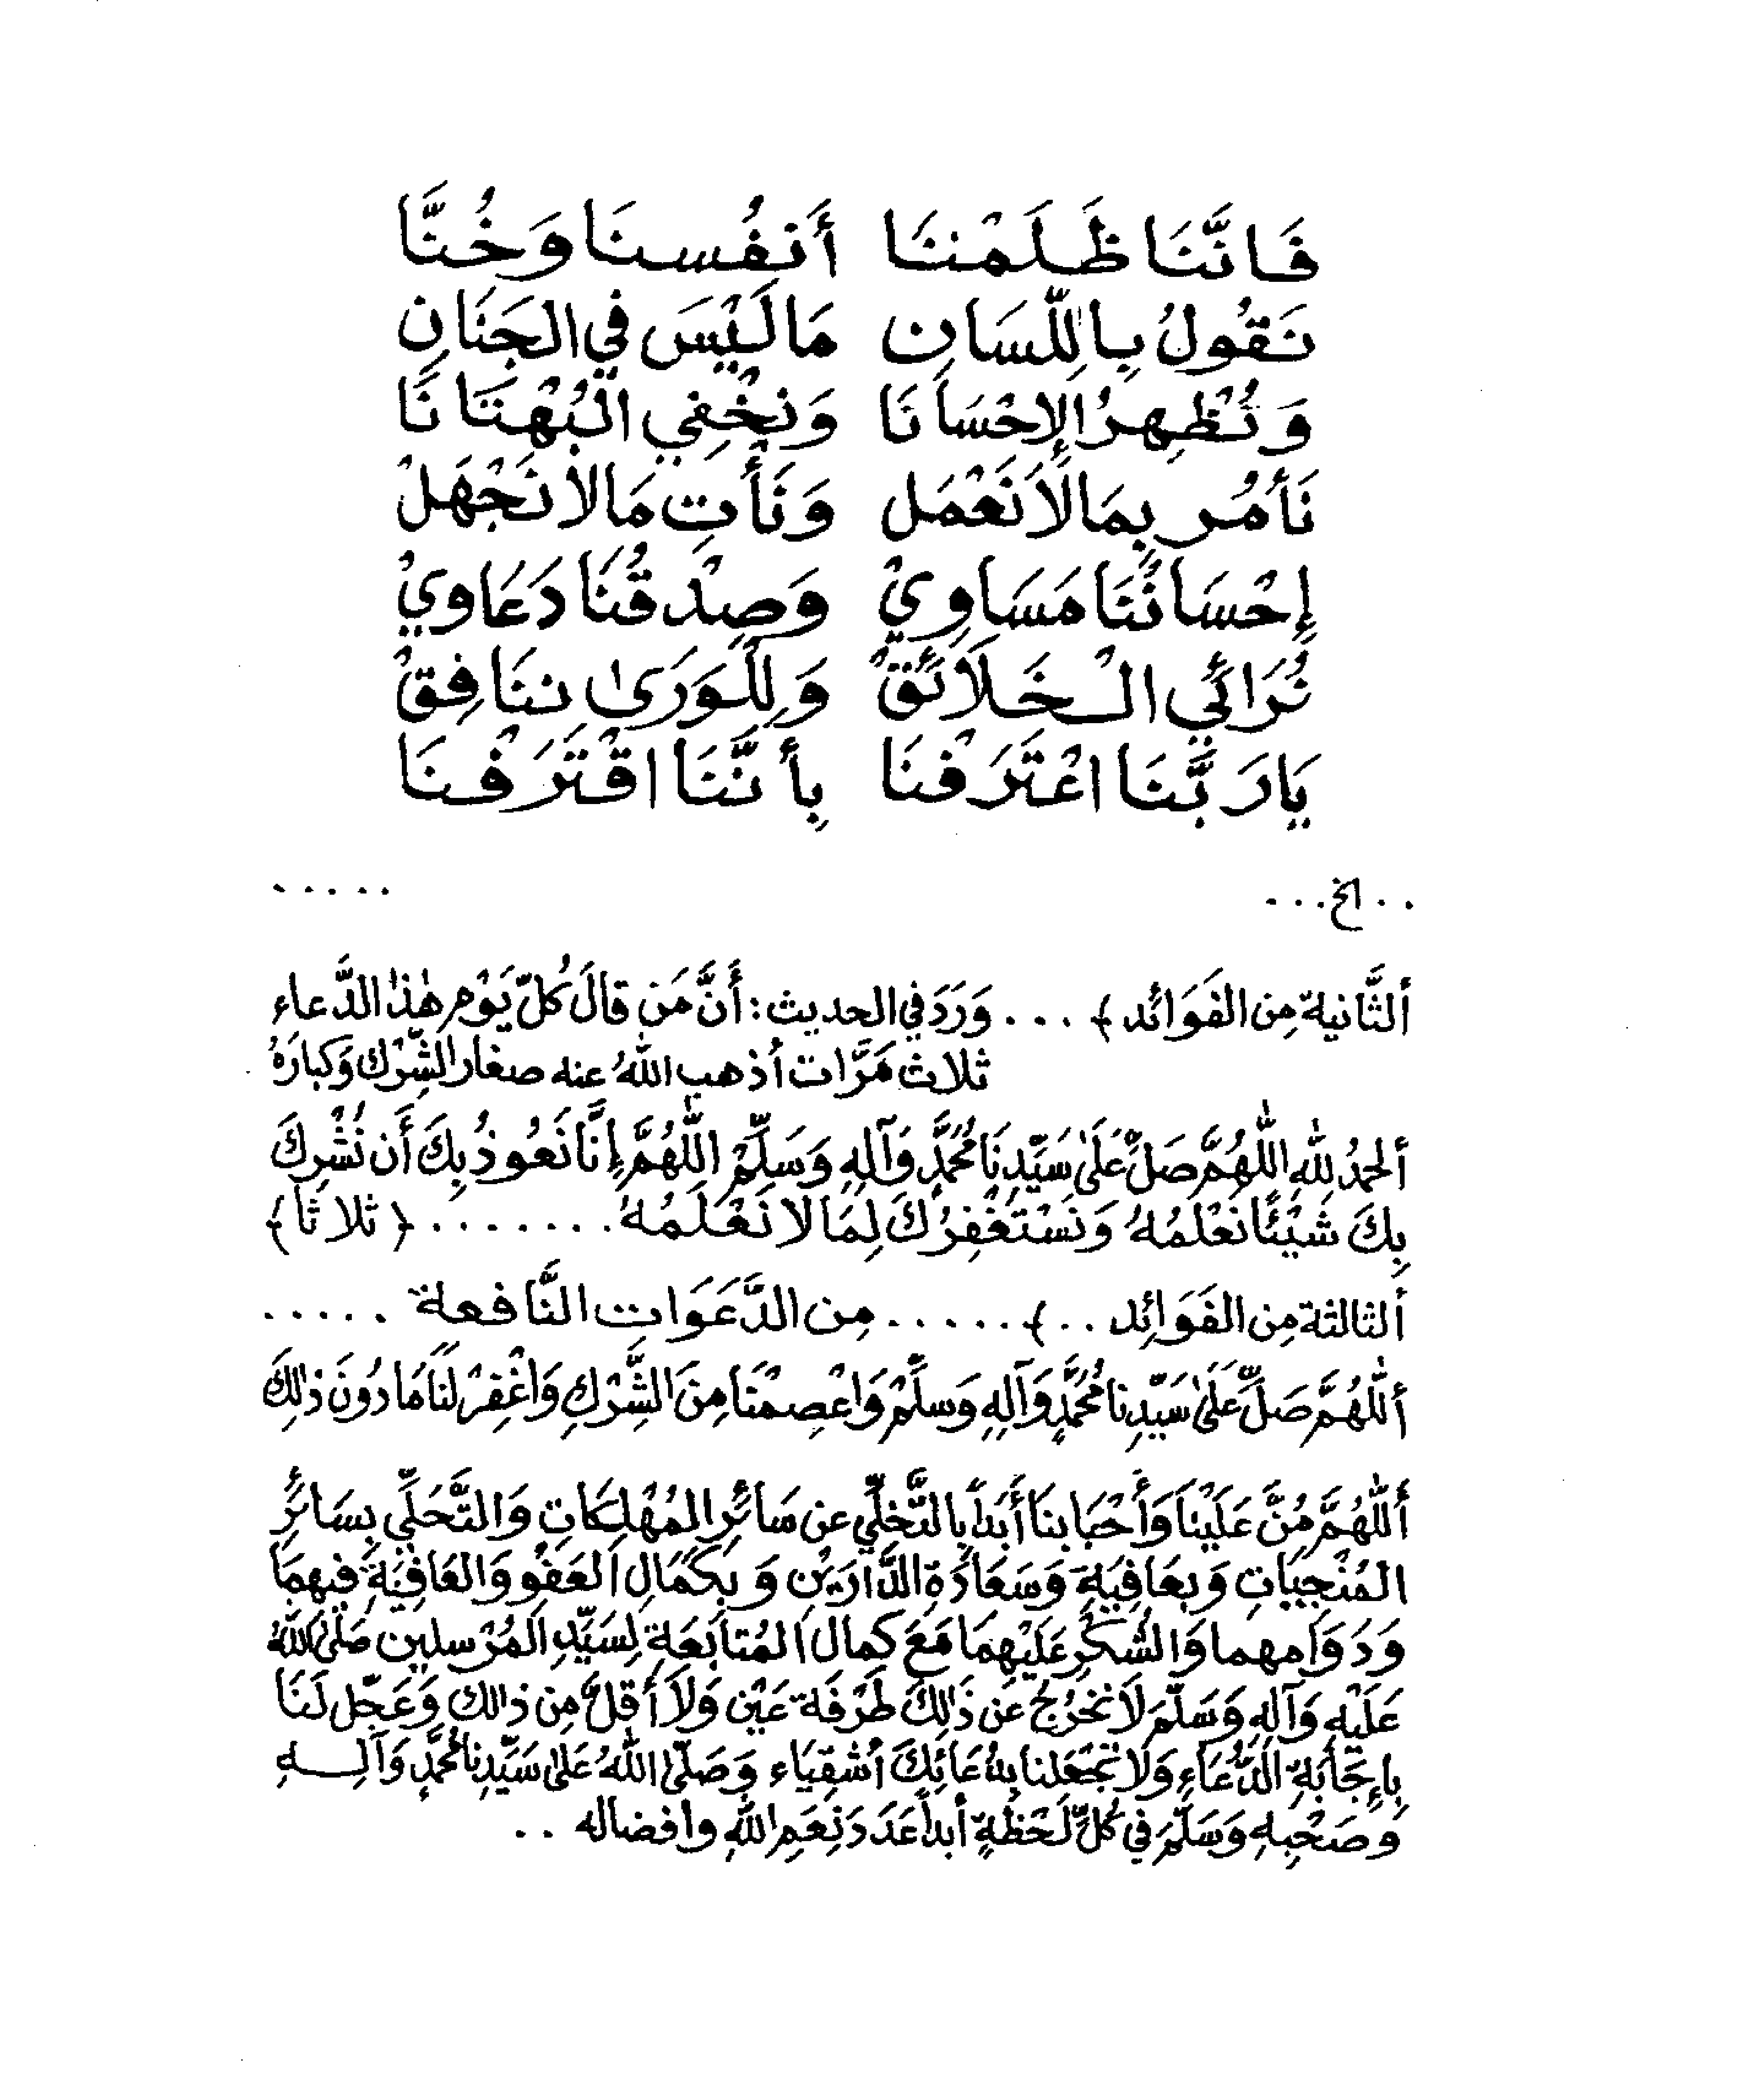 فَإِنَّنَا ظَلَمْنَا أَنفُسنَا وَخُنَّا
نَقُولُ بِاللِّسَانِ مَا لَيْسَ فِي الجَنَانِ
وَنُظْهِرُ الإِحْسَانَا وَنُخْفِي الْبُهْتَانَا
نَأمُر بِمَا لاَ نَعْمَل وَنَأْتِ مَا لاَ نَجْهَلْ
إِحْسَانُنَا مَسَاوِيْ وَصِدْقُنَا دَعَاوِيْ
نُرَائِي الْخَلاَئَقْ وَلِلْوَرَىٰ ننَافِقْ
يَارَبَّنَا اعْتَرَفْنَا بِأَنَّنَا اقْتَرَفْنَا
. . الخ . . . . . . . .
ألثَّانية مِن الفَوَائد ) . . . وَرَدَ في الحديث : أَنَّ مَن قالَ كُلّ يَوْم هٰذا الدَّعاء
ثلاث مَرَّات أذهب اللهُ عنه صغار الشِّرْك وَكبارَهُ
ألحمدُ للهِ اللّٰهُمَّ صَلِّ عَلَىٰ سَيِّدِنَا مُحَمَّدٍ وَآلِهِ وَسَلِّمْ اللّٰهُمَّ إِنَّا نَعُوذُ بِكَ أَن نُشْرِكَ
بِكَ شَيْئًا نَعْلَمُهُ وَنَسْتَغْفِرُكَ لِمَا لا نَعْلَمُهُ . . . . . . . . ( ثلاثا )
ألثالثة مِن الفَوَائِد . . ) . . . . . . مِن الدَّعَوَاتِ النَّافعة . . . . .
أَللّٰهُمَّ صَلِّ عَلَىٰ سَيّدِنا مُحَمَّدٍ وَآلِهِ وَسَلِّمْ وَاعْصِمْنَا مِنَ الشِّرْكِ وَاغْفِرْ لَنَا مَا دُونَ ذٰلِكَ
أَللّٰهُمَّ مُنَّ عَلَيْنَا وَأَحْبَابنَا أَبَداً بِالتَّخَلِّي عن سَائِرِ المُهْلِكَاتِ وَالتَّحَلِّي بِسَائِرِ
المُنْجِيَاتِ وَبِعَافِيَةِ وَسَعَادَةِ الدَّارَيْنِ وَبِكَمَالِ العَفْوِ وَالعَافِيَةِ فِيهِمَا
وَدَوَامِهما وَالشُّكْرِ عَلَيْهِمَا مَعَ كمال المُتابَعَةِ لِسَيِّدِ المُرْسلين صَلَّى اللهُ
عَلَيْهِ وَآلِهِ وَسَلَّمَ لاَ نَخْرُجُ عَن ذَٰلِكَ طَرْفَة عَيْنٍ وَلاَ أَقلّ مِن ذالك وَعَجّل لَنَا
بِإجَابَةِ الدُّعَاءِ وَلاَ تَجْعَلنا بدُعَائِكَ أشْقِيَاء وَصَلَّى اللهُ عَلىٰ سَيِّدِنَا مُحَمَّدٍ وَآلِــهِ
وَصَحْبِهِ وَسَلّمَ في كُلِّ لَحْظَةٍ أبداً عَدَدَ نِعَمِ اللهِ وافضاله . .